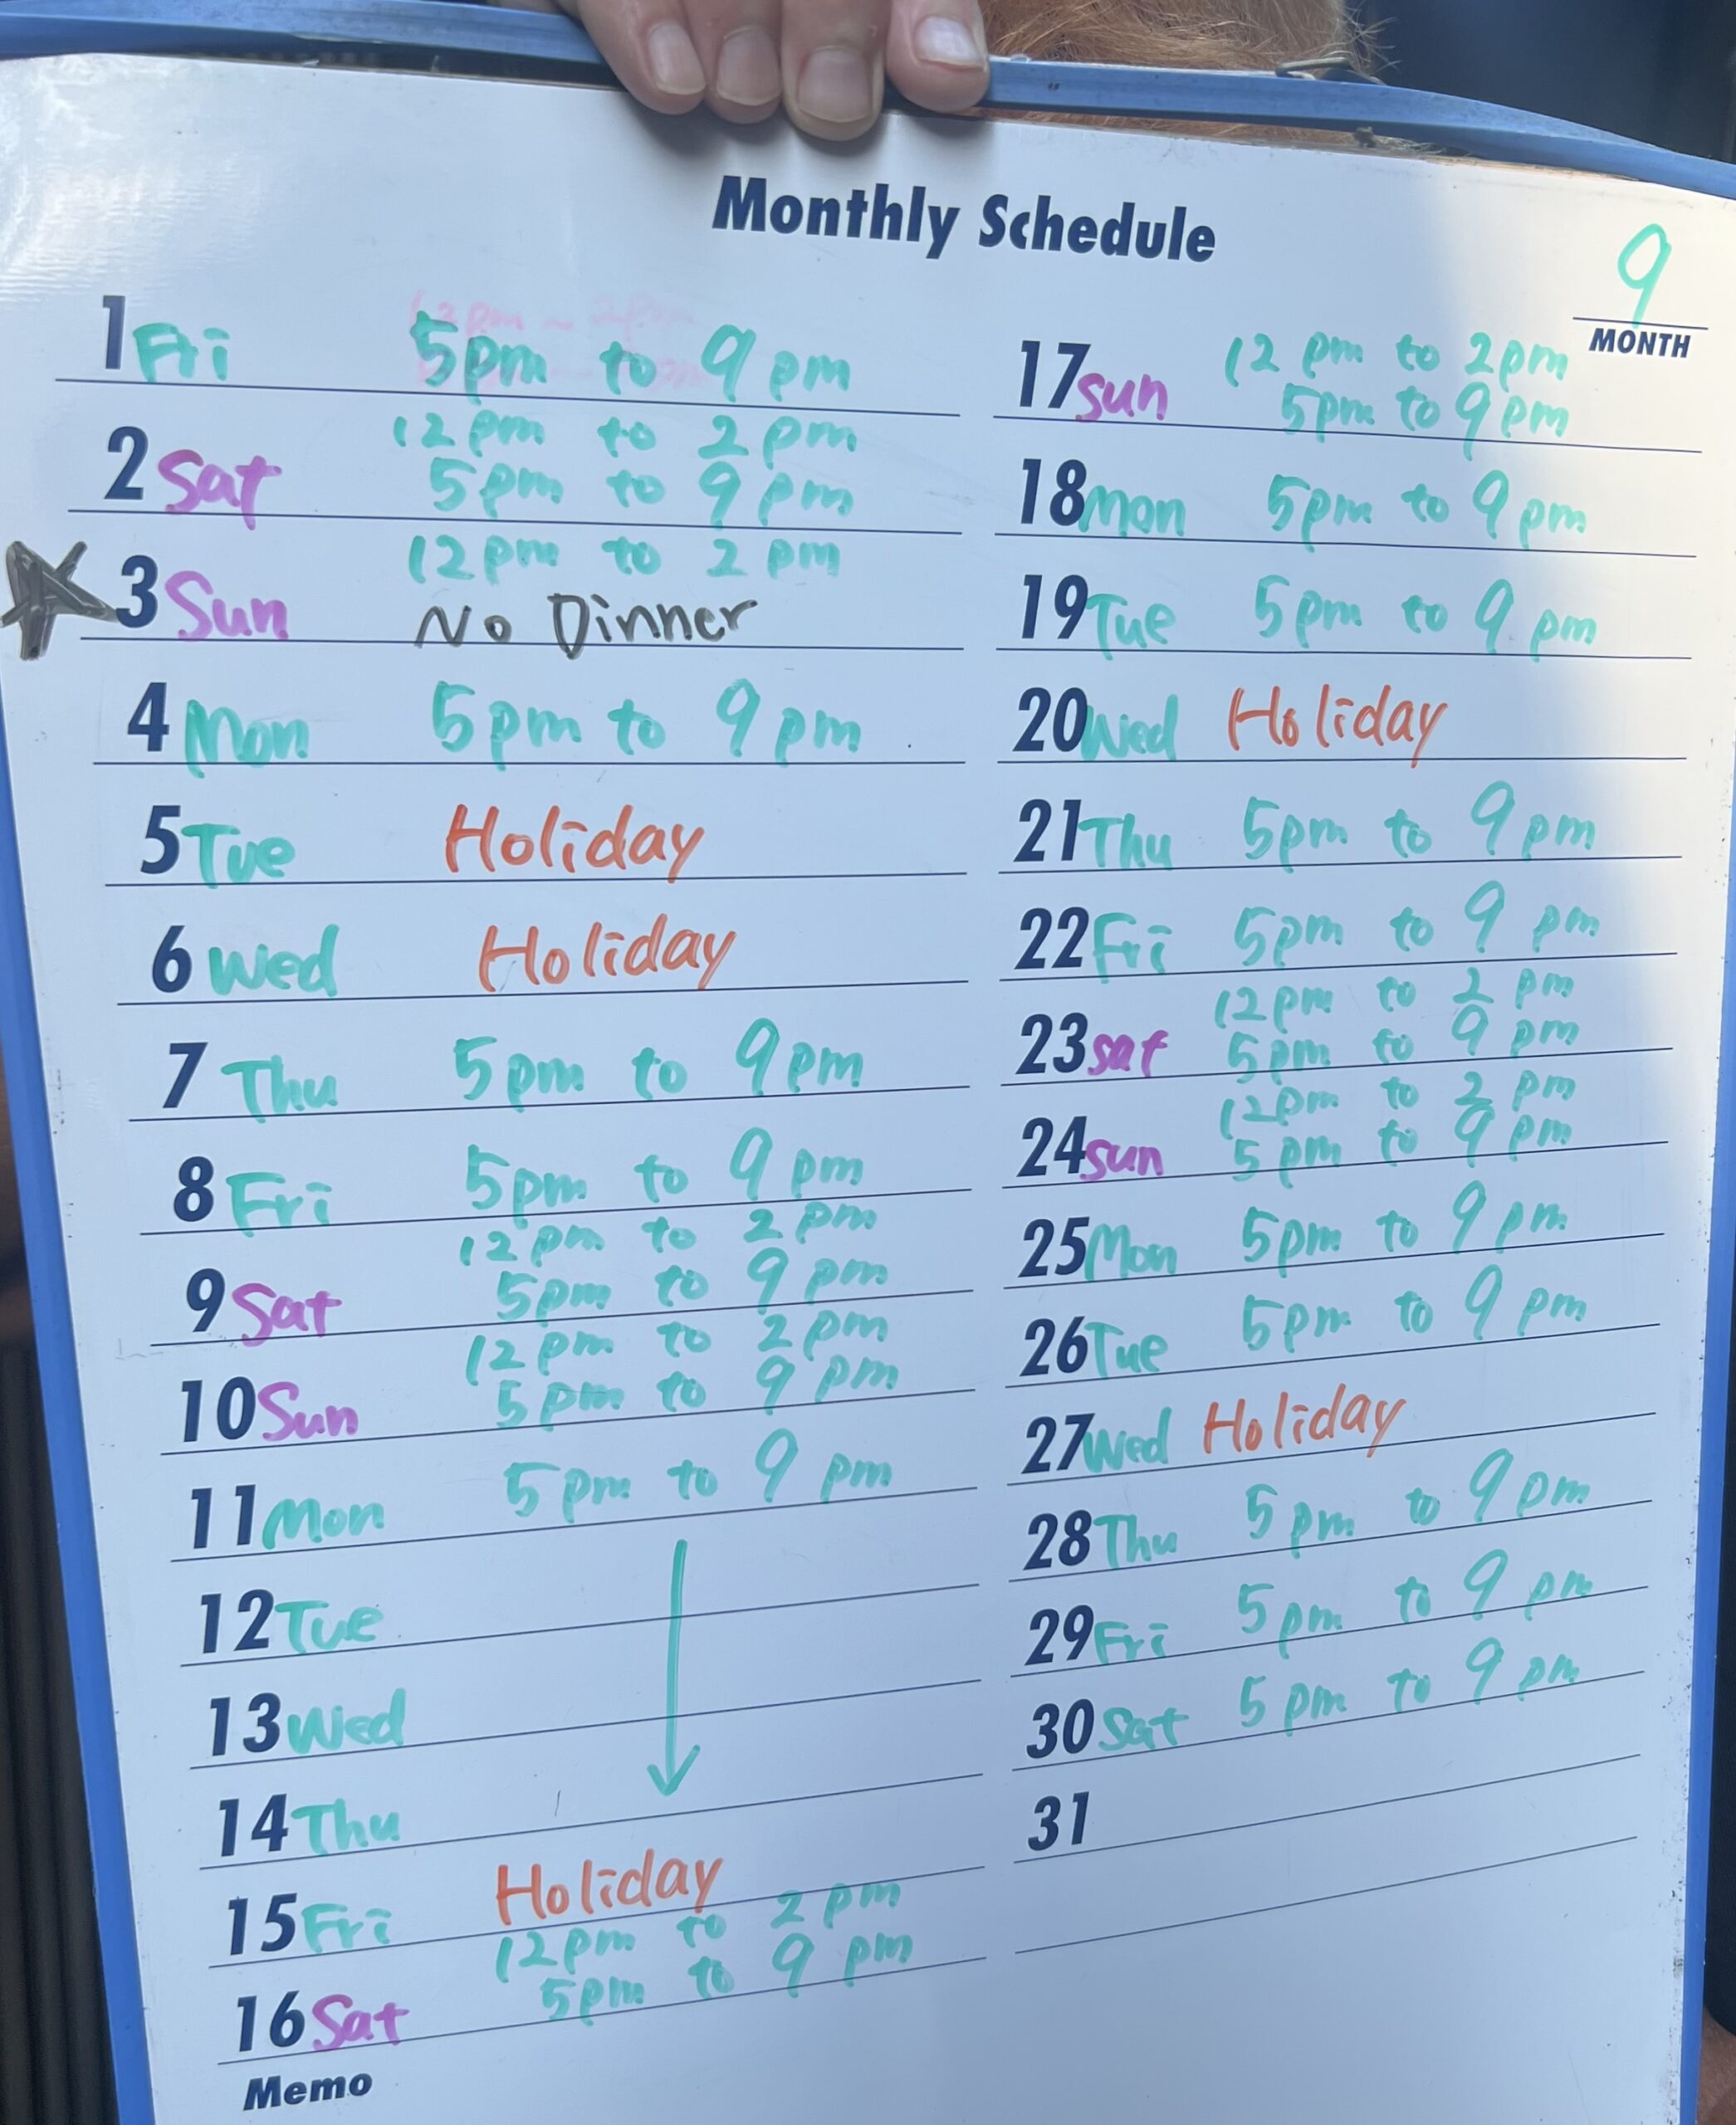 Monthly Schedule
9
MONTH
1 Fri 5pm to 9pm
2 Sat 12pm to 2pm
5pm to 9pm
3 Sun 12pm to 2pm
No Dinner
4 Mon 5pm to 9pm
5 Tue Holiday
6 Wed Holiday
7 Thu 5pm to 9pm
8 Fri 5pm to 9pm
9 Sat 12pm to 2pm
5pm to 9pm
10 Sun 12pm to 2pm
5pm to 9pm
11 Mon 5pm to 9pm
12 Tue
13 Wed
14 Thu
15 Fri Holiday
16 Sat 12pm to 2pm
5pm to 9pm
Memo
17 sun 12pm to 2pm
5pm to 9pm
18 mon 5pm to 9pm
19 Tue 5pm to 9pm
20 Wed Holiday
21 Thu 5pm to 9pm
22 Fri 5pm to 9pm
23 sat 12pm to 2pm
5pm to 9pm
24 sun 12pm to 2pm
5pm to 9pm
25 Mon 5pm to 9pm
26 Tue 5pm to 9pm
27 Wed Holiday
28 Thu 5pm to 9pm
29 Fri 5pm to 9pm
30 Sat 5pm to 9pm
31